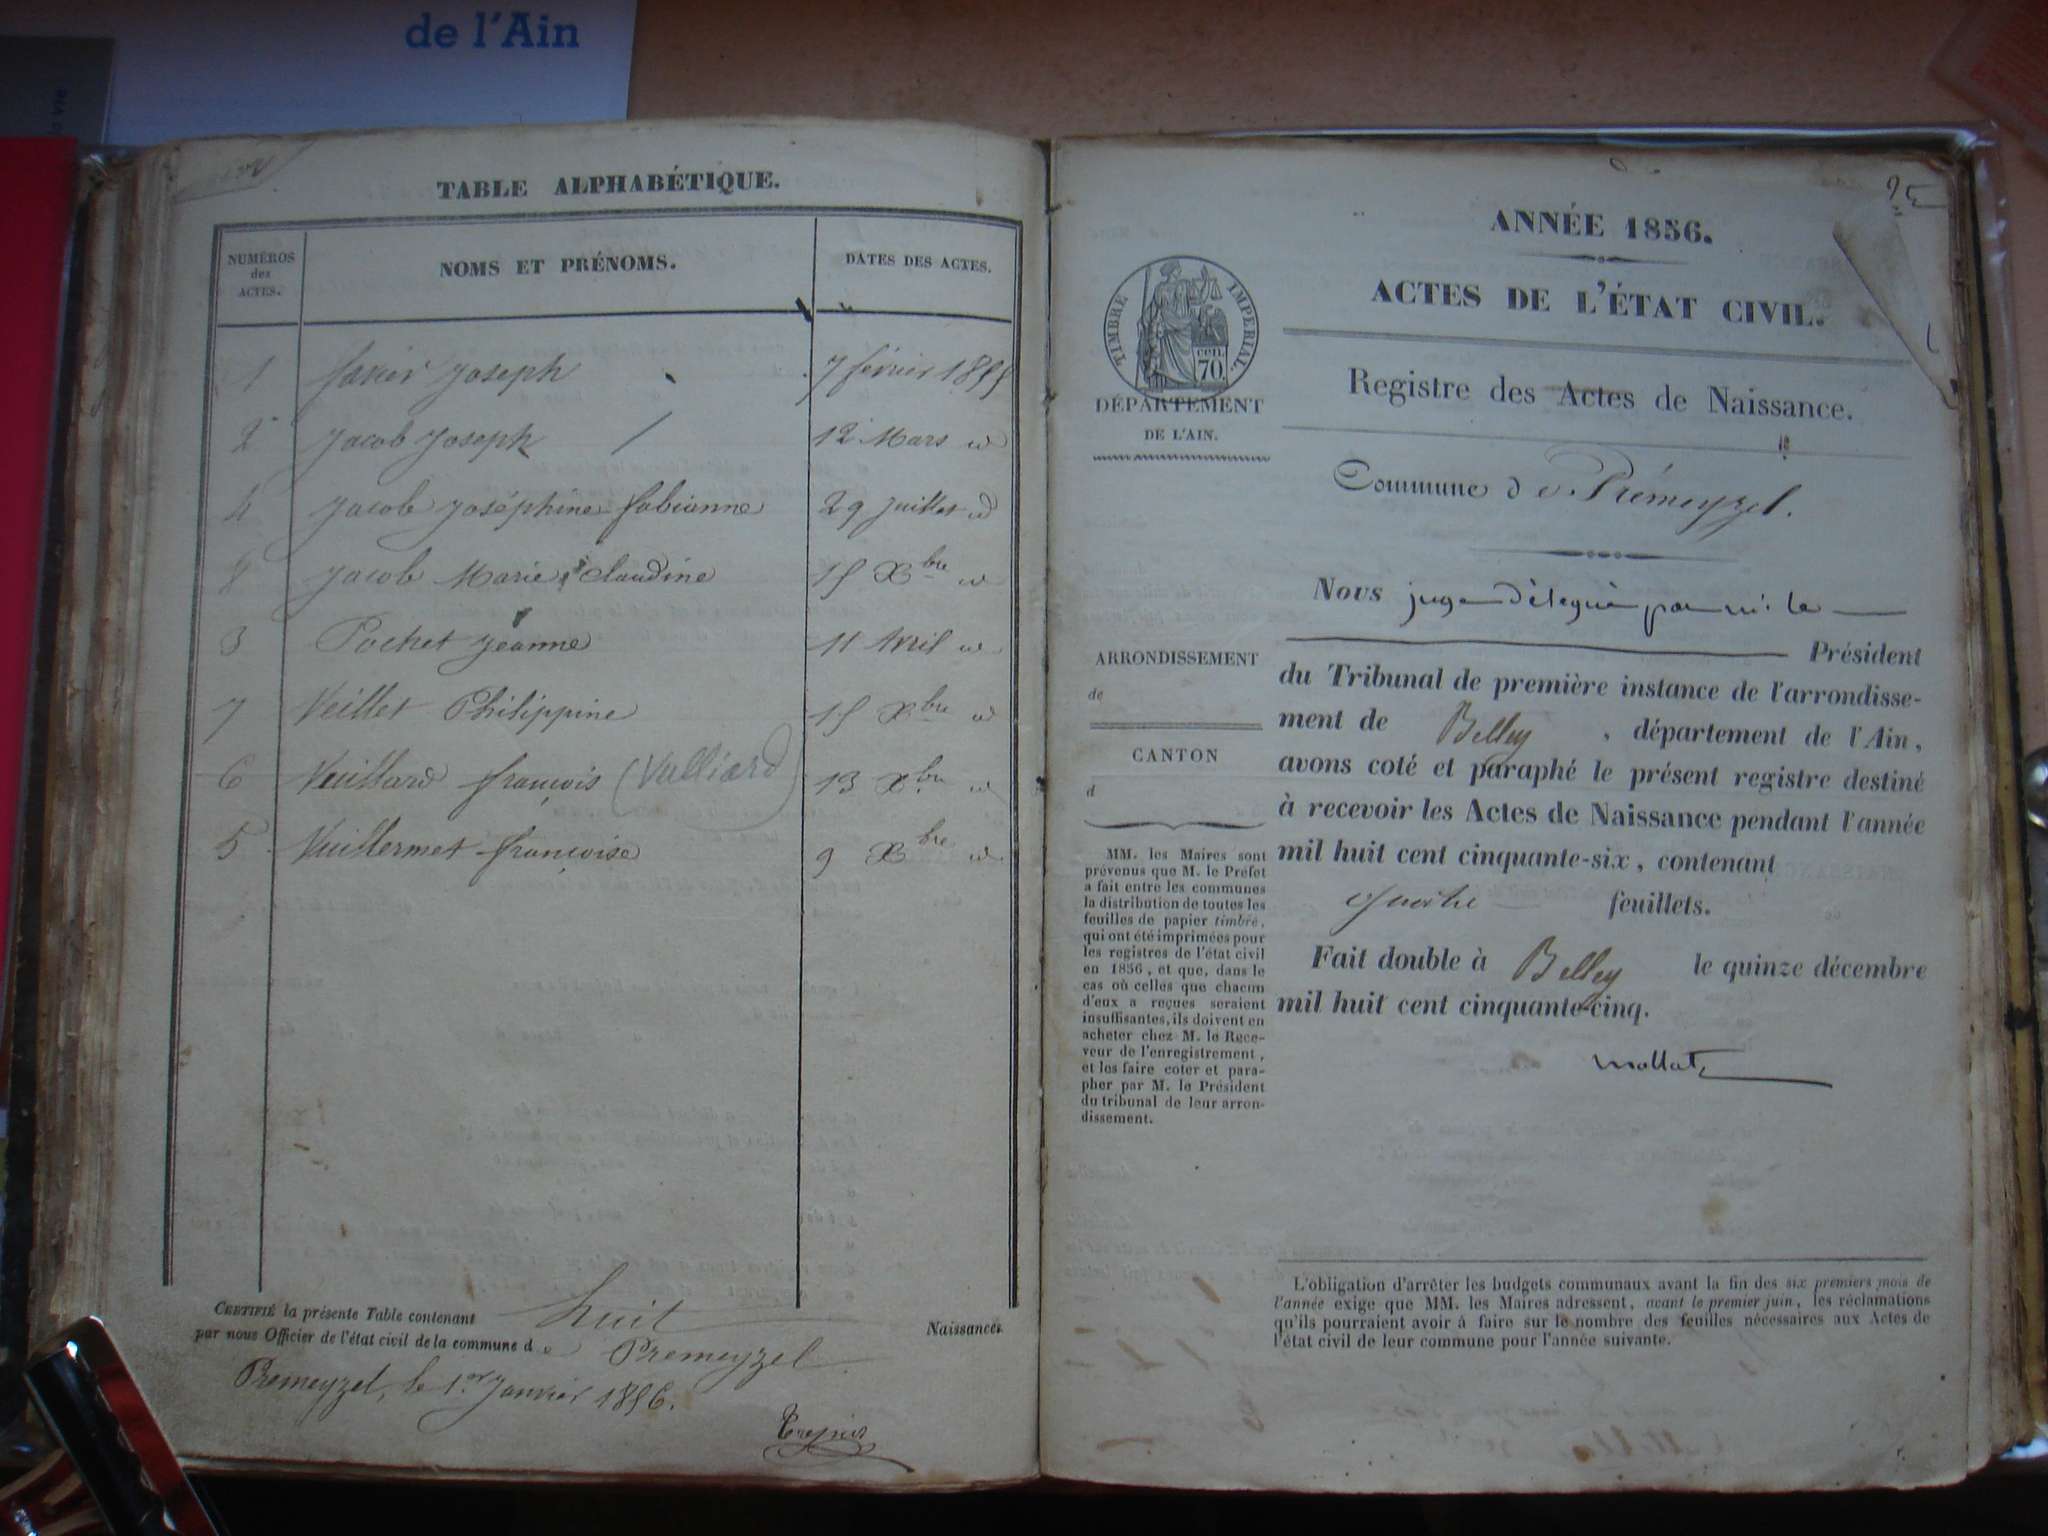 de l'Ain
TABLE ALPHABÉTIQUE.
NUMÉROS
des
ACTES.
NOMS ET PRÉNOMS.
DATES DES ACTES.
1 Joseph 7 février 1855
2 Jacob Joseph 12 Mars id
4 Jacob Joséphine Fabianne 29 juillet id
8 Jacob Marie Claudine 15 Xbre id
3 Pochet Jeanne 11 Avril id
7 Veillet Philippine 15 Xbre id
6 Vuillard françois (Vulliard) 13 Xbre id
5 Vuillermet françoise 9 Xbre id
CERTIFIÉ la présente Table contenant huit Naissances
par nous Officier de l'état civil de la commune de Premeyzel
Premeyzel, le 1er Janvier 1856.
ANNÉE 1856.
ACTES DE L'ÉTAT CIVIL.
TIMBRE IMPÉRIAL.
cen.
70.
DÉPARTEMENT
DE L'AIN.
Registre des Actes de Naissance.
Commune de Prémeyzel.
Nous juge délégué par mr. le
Président
du Tribunal de première instance de l'arrondisse-
ment de Belley, département de l'Ain,
avons coté et paraphé le présent registre destiné
à recevoir les Actes de Naissance pendant l'année
mil huit cent cinquante-six, contenant
quatre feuillets.
Fait double à Belley le quinze décembre
mil huit cent cinquante-cinq.
Mollat
ARRONDISSEMENT
de
CANTON
d
MM. les Maires sont
prévenus que M. le Préfet
a fait entre les communes
la distribution de toutes les
feuilles de papier timbré,
qui ont été imprimées pour
les registres de l'état civil
en 1856, et que, dans le
cas où celles que chacun
d'eux a reçues seraient
insuffisantes, ils doivent en
acheter chez M. le Rece-
veur de l'enregistrement,
et les faire coter et para-
pher par M. le Président
du tribunal de leur arron-
dissement.
L'obligation d'arrêter les budgets communaux avant la fin des six premiers mois de
l'année exige que MM. les Maires adressent, avant le premier juin, les réclamations
qu'ils pourraient avoir à faire sur le nombre des feuilles nécessaires aux Actes de
l'état civil de leur commune pour l'année suivante.